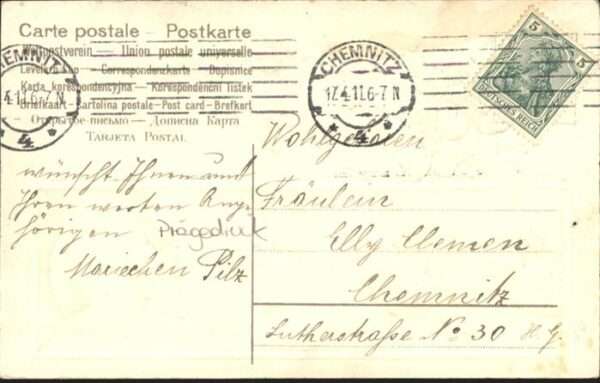 Carte postale – Postkarte
Weltpostverein – Union postale universelle
Correspondenzkarte – Dopisnice
Karta korespondencyjna – Korespondenční lístek
Brefkaart – Cartolina postale – Post card – Brefkort
Открытое письмо – Дописна Карта
TARJETA POSTAL
CHEMNITZ
4
CHEMNITZ
17.4.11.6-7 N
4
5
5
DEUTSCHES REICH
wünscht Ihnen und
Ihren werten Ange
hörigen
Prägedruck
Mariechen Pilz
Wohlgeboren
Fräulein
Elly Clemen
Chemnitz
Lutherstraße No 30 H. G.